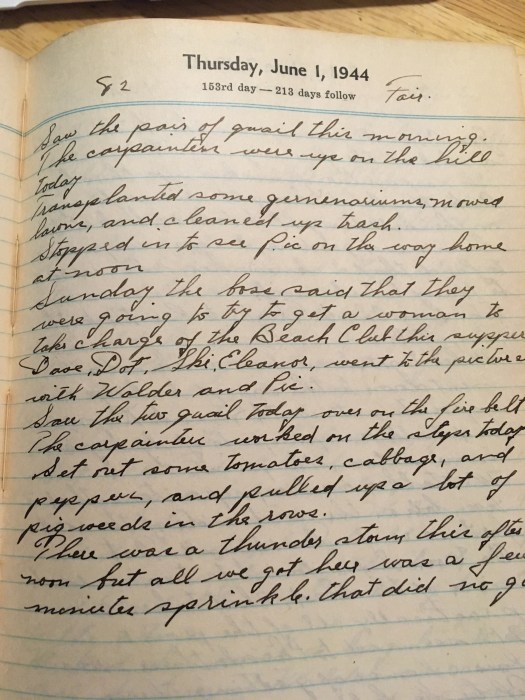 Thursday, June 1, 1944
82 153rd day — 213 days follow Fair.
Saw the pair of quail this morning.
The carpainters were up on the hill
today
Transplanted some gernenariums, mowed
lawns, and cleaned up trash.
Stopped in to see Pic on the way home
at noon
Sunday the bose said that they
were going to try to get a woman to
take charge of the Beach Club this supper
Dave, Dot, Ski, Eleanor, went to the picture
with Walder and Pic.
Saw the two quail today over on the fire belt
The carpainters worked on the steps today
Set out some tomatoes, cabbage, and
peppers, and pulled up a lot of
pigweeds in the rows.
There was a thunder storm this after
noon but all we got here was a few
minutes sprinkle. that did no go